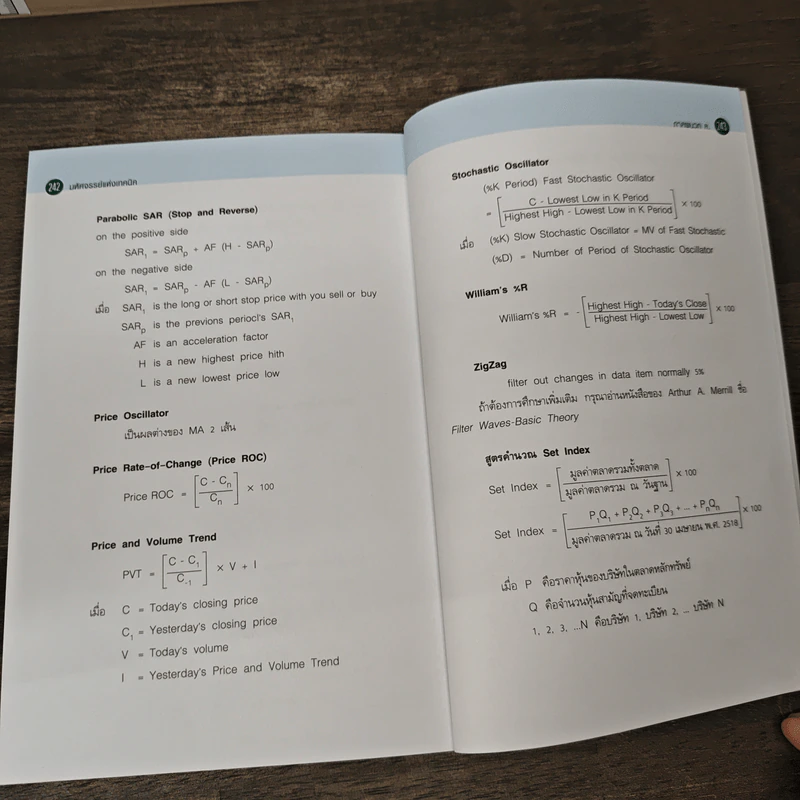 242 มหัศจรรย์แห่งเทคนิค
Parabolic SAR (Stop and Reverse)
on the positive side
SAR₁ = SARₚ + AF (H - SARₚ)
on the negative side
SAR₁ = SARₚ - AF (L - SARₚ)
เมื่อ SAR₁ is the long or short stop price with you sell or buy
SARₚ is the previons periocl's SAR₁
AF is an acceleration factor
H is a new highest price hith
L is a new lowest price low
Price Oscillator
เป็นผลต่างของ MA 2 เส้น
Price Rate-of-Change (Price ROC)
Price ROC = [C - Cₙ / Cₙ] × 100
Price and Volume Trend
PVT = [C - C₁ / C₋₁] × V + I
เมื่อ C = Today's closing price
C₁ = Yesterday's closing price
V = Today's volume
I = Yesterday's Price and Volume Trend
ภาคผนวก ค. 243
Stochastic Oscillator
(%K Period) Fast Stochastic Oscillator
= [C - Lowest Low in K Period / Highest High - Lowest Low in K Period] × 100
เมื่อ (%K) Slow Stochastic Oscillator = MV of Fast Stochastic
(%D) = Number of Period of Stochastic Oscillator
William's %R
William's %R = -[Highest High - Today's Close / Highest High - Lowest Low] × 100
ZigZag
filter out changes in data item normally 5%
ถ้าต้องการศึกษาเพิ่มเติม กรุณาอ่านหนังสือของ Arthur A. Merrill ชื่อ
Filter Waves-Basic Theory
สูตรคำนวณ Set Index
Set Index = [มูลค่าตลาดรวมทั้งตลาด / มูลค่าตลาดรวม ณ วันฐาน] × 100
Set Index = [P₁Q₁ + P₂Q₂ + P₃Q₃ + ... + PₙQₙ / มูลค่าตลาดรวม ณ วันที่ 30 เมษายน พ.ศ. 2518] × 100
เมื่อ P คือราคาหุ้นของบริษัทในตลาดหลักทรัพย์
Q คือจำนวนหุ้นสามัญที่จดทะเบียน
1, 2, 3, ...N คือบริษัท 1, บริษัท 2, ... บริษัท N